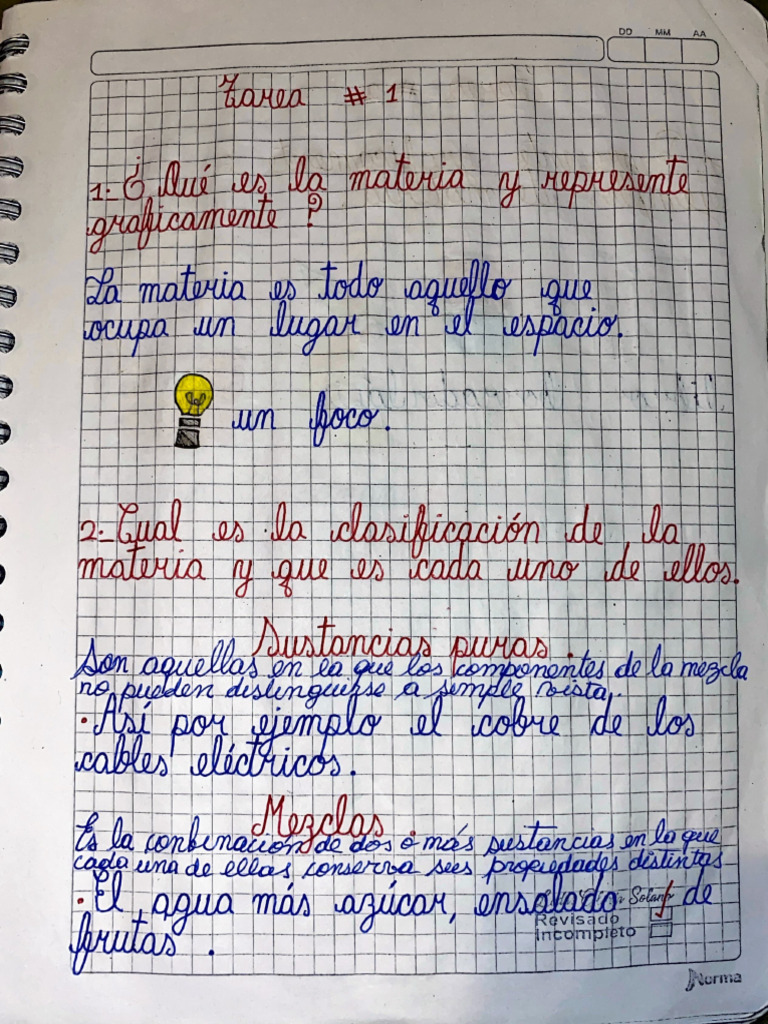 DD MM AA
Tarea # 1
1.- ¿Qué es la materia y represente
graficamente?
La materia es todo aquello que
ocupa un lugar en el espacio.
un foco.
2.- Cual es la clasificación de la
materia y que es cada uno de ellos.
Sustancias puras.
Son aquellas en la que los componentes de la mezcla
no pueden distinguirse a simple vista.
· Así por ejemplo el cobre de los
cables eléctricos.
Mezclas.
Es la conbinación de dos o más sustancias en la que
cada una de ellas conserva sus propiedades distintas
· El agua más azúcar, ensalada de
frutas.
Revisado
Incompleto
Norma